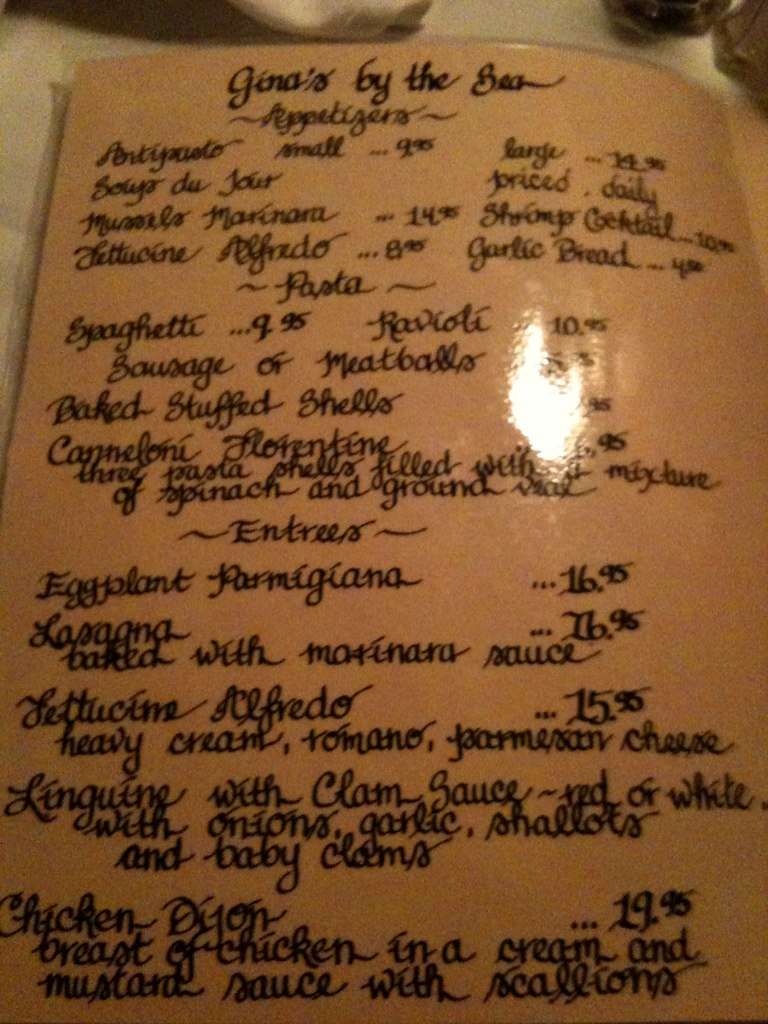 Gina's by the Sea
~Appetizers~
Antipasto small ... 9.95 large ... 14.95
Soup du Jour priced . daily
Mussels Marinara ... 14.95 Shrimp Cocktail ... 10.95
Fettucine Alfredo ... 8.95 Garlic Bread ... 4.50
~ Pasta ~
Spaghetti ... 9.95 Ravioli 10.95
Sausage or Meatballs
Baked Stuffed Shells .95
Canneloni Florentine .95
three pasta shells filled with a mixture
of spinach and ground veal
~Entrees~
Eggplant Parmigiana ... 16.95
Lasagna ... 16.95
baked with marinara sauce
Fettucine Alfredo ... 15.95
heavy cream, romano, parmesan cheese
Linguine with Clam Sauce ~ red or white.
with onions, garlic, shallots
and baby clams
Chicken Dijon ... 19.95
breast of chicken in a cream and
mustard sauce with scallions